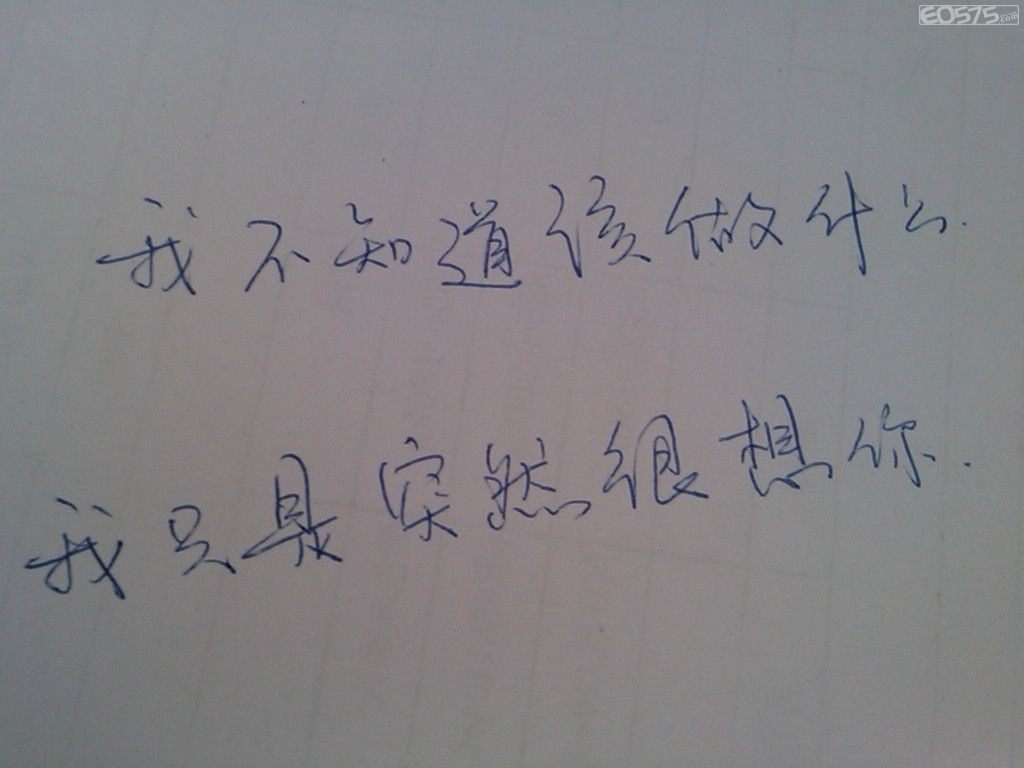 EO575.com
我不知道该做什么.
我只是突然很想你.